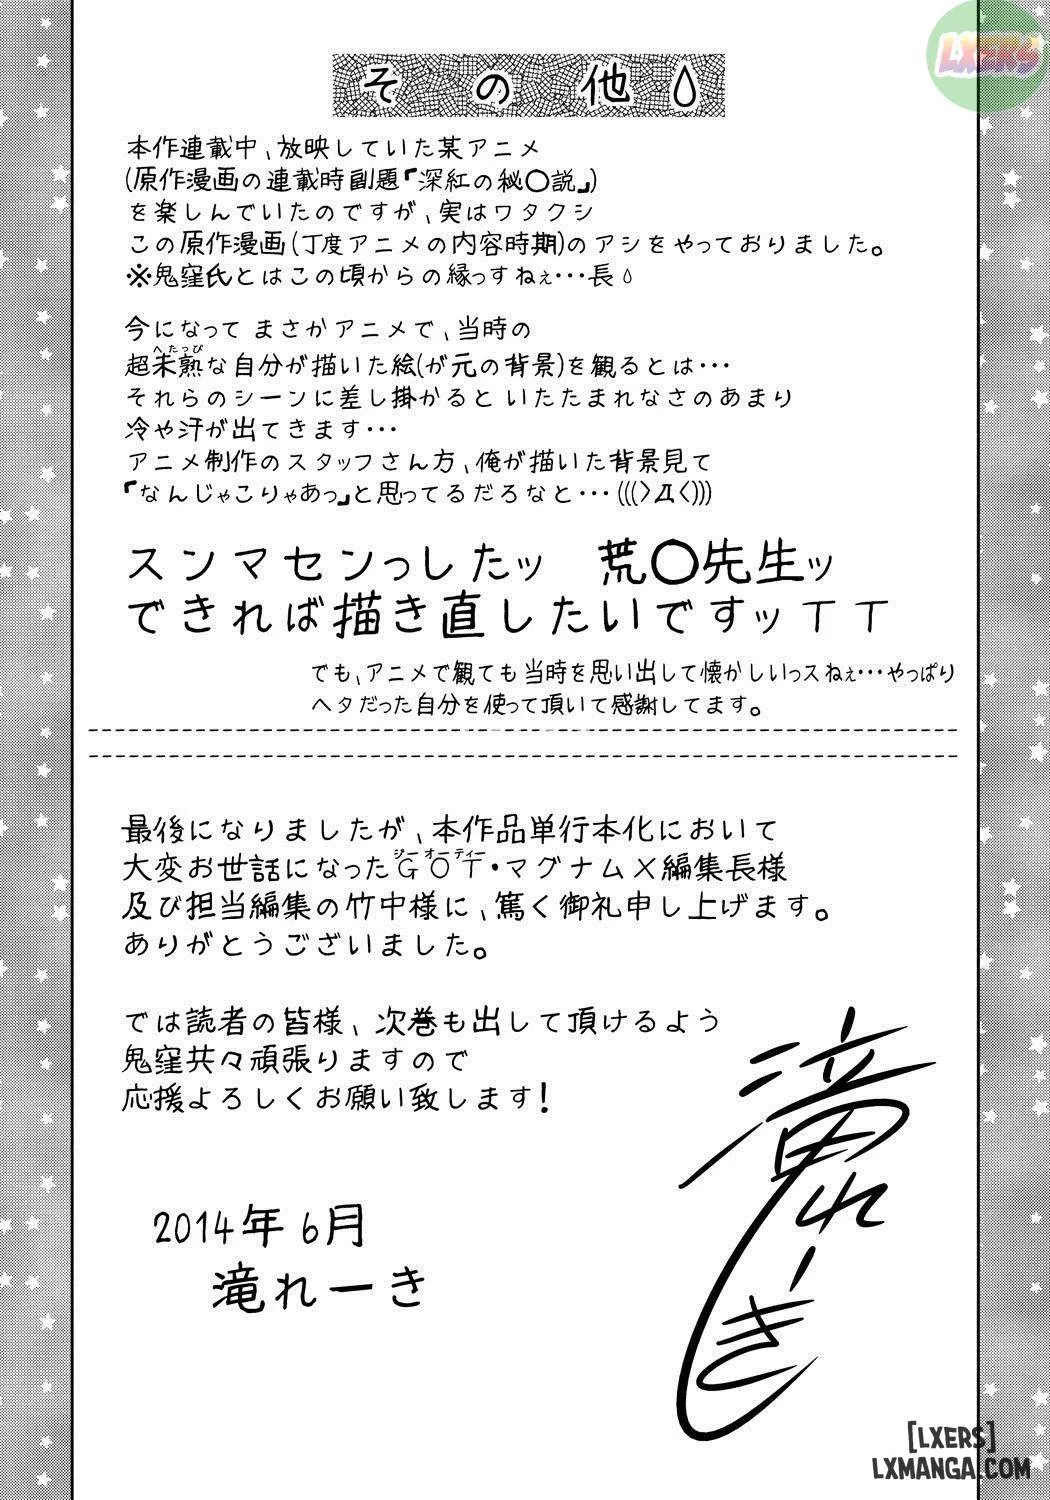 LXERS
その他
本作連載中、放映していた某アニメ
(原作漫画の連載時副題『深紅の秘〇説』)
を楽しんでいたのですが、実はワタクシ
この原作漫画(丁度アニメの内容時期)のアシをやっておりました。
※鬼窪氏とはこの頃からの縁っすねぇ・・・長
今になって まさかアニメで、当時の
へたっぴ
超未熟な自分が描いた絵(が元の背景)を観るとは・・・
それらのシーンに差し掛かると いたたまれなさのあまり
冷や汗が出てきます・・・
アニメ制作のスタッフさん方、俺が描いた背景見て
『なんじゃこりゃあっ』と思ってるだろなと・・・(((〉Д〈)))
スンマセンっしたッ 荒〇先生ッ
できれば描き直したいですッTT
でも、アニメで観ても当時を思い出して懐かしいっスねぇ・・・やっぱり
ヘタだった自分を使って頂いて感謝してます。
最後になりましたが、本作品単行本化において
ジーオーティー
大変お世話になったGOT・マグナムX編集長様
及び担当編集の竹中様に、篤く御礼申し上げます。
ありがとうございました。
では読者の皆様、次巻も出して頂けるよう
鬼窪共々頑張りますので
応援よろしくお願い致します!
2014年6月
滝れーき
滝れーき
[LXERS]
LXMANGA.COM